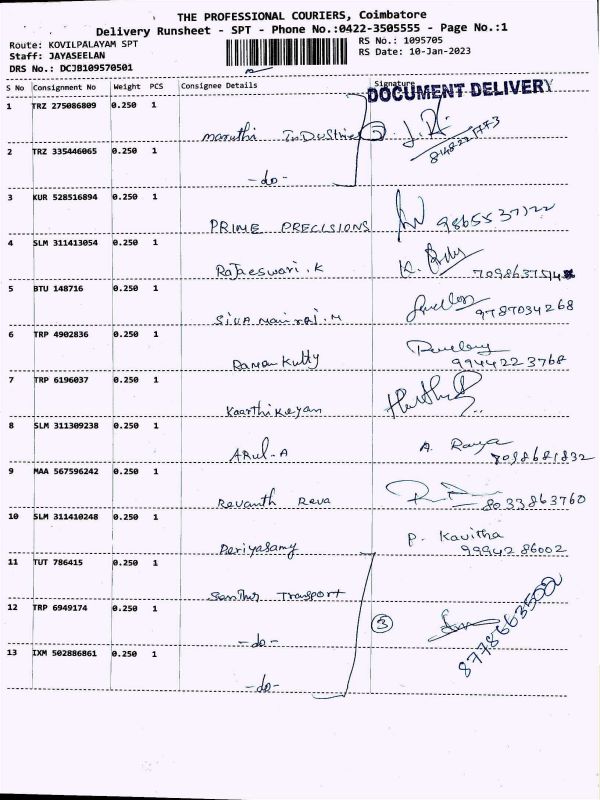 THE PROFESSIONAL COURIERS, Coimbatore
Delivery Runsheet - SPT - Phone No.:0422-3505555 - Page No.:1
Route: KOVILPALAYAM SPT
RS No.: 1095705
Staff: JAYASEELAN
RS Date: 10-Jan-2023
DRS No.: DCJB109570501
S No Consignment No Weight PCS Consignee Details Signature
DOCUMENT DELIVERY
1 TRZ 275086809 0.250 1
maruthi InDustries 2
2 TRZ 335446065 0.250 1
-do-
3 KUR 528516894 0.250 1
PRIME PRECISIONS
4 SLM 311413054 0.250 1
Rajaeswari.K
5 BTU 148716 0.250 1
9787034268
6 TRP 4902836 0.250 1
Raman Kutty 9944223768
7 TRP 6196037 0.250 1
Kaarthikeyan
8 SLM 311309238 0.250 1
ARul-A A. Ramya
7098681832
9 MAA 567596242 0.250 1
Revanth Reva 8033863760
10 SLM 311410248 0.250 1
Periyasamy P. Kavitha
9994286002
11 TUT 786415 0.250 1
Santhur Transport
12 TRP 6949174 0.250 1
-do- 3
8778663502
13 IXM 502886861 0.250 1
-do-